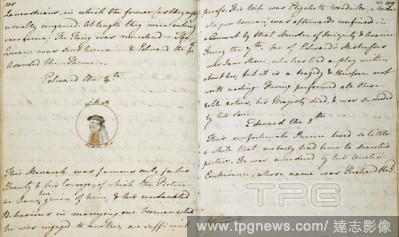 Lancastrians, in which the former (as they ought)
usually conquered. At length they were entirely
overcome; The King was murdered — The
Queen was sent home — & Edward the 4th
Ascended the Throne.
Edward the 4th
This Monarch was famous only for his
Beauty & his Courage, of which the Picture
we have given of him, & his undaunted
Behaviour in marrying one Woman while
he was engaged to another, are suffi
proofs. His wife was Elizabeth Woodville, a
poor Woman!, was afterwards confined in
a Convent by that Monster of Iniquity & Avarice
Henry the 7th. One of Edward's Mistresses
was Jane Shore, who has had a play written
about her, but it is a tragedy & therefore not
worth reading. Having performed all these
noble actions, his Majesty died, & was succeeded
by his Son.
Edward the 5th
This unfortunate Prince lived so little
a while that no body had time to draw his
picture. He was murdered by his Uncle's
Contrivance, whose name was Richard the 3d.
TPG
www.tpgnews.com
TPG 達志影像